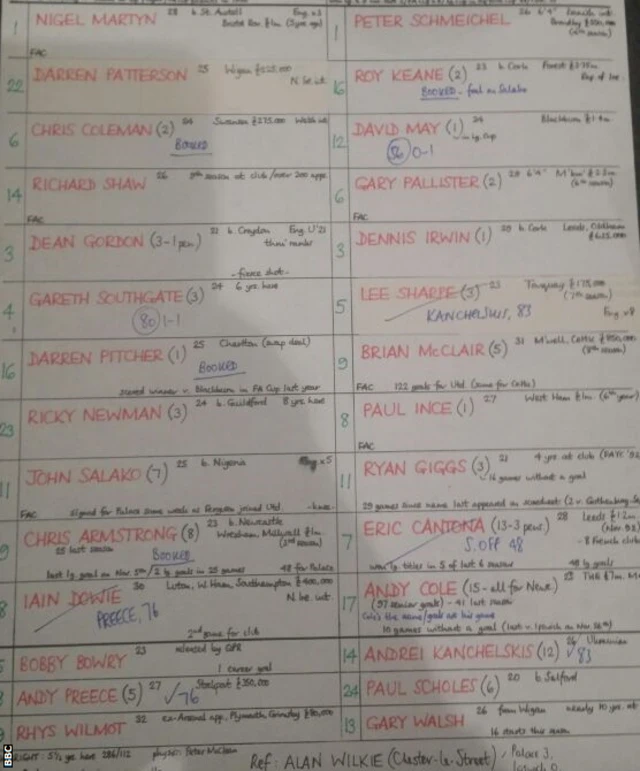 1 NIGEL MARTYN 28 b. St. Austell Eng. x3
Bristol Rov £1m
FAC
22 DARREN PATTERSON 25 Wigan £225,000
N. Ire. int.
6 CHRIS COLEMAN (2) 24 Swansea £275,000 Welsh int.
BOOKED
14 RICHARD SHAW 26 season at club/over 200 apps.
FAC
3 DEAN GORDON (3-1 pen.) 22 b. Croydon Eng. U'21
- fierce shot -
4 GARETH SOUTHGATE (3) 24 6 yrs. here
80 1-1
16 DARREN PITCHER (1) 25 Charlton (swap deal)
BOOKED
scored winner v. Blackburn in FA Cup last year
23 RICKY NEWMAN (3) 24 b. Guildford 8 yrs. here
11 JOHN SALAKO (7) 25 b. Nigeria Eng x5
FAC signed for Palace same week as Ferguson joined Utd. - knee -
9 CHRIS ARMSTRONG (8) 23 b. Newcastle
Wrexham, Millwall £1m
25 last season BOOKED
last lg goal on Nov 5th/2 lg goals in 25 games 48 for Palace
8 IAIN DOWIE 30 Luton, W. Ham, Southampton £400,000
N. Ire. int.
PREECE, 76
2nd game for club
5 BOBBY BOWRY 23 released by QPR
1 career goal
ANDY PREECE (5) 27 ✓76 Stockport £350,000
RHYS WILMOT 32 ex-Arsenal app., Plymouth, Grimsby £80,000
RIGHT: 5½ yrs. here 286/112 physio: Peter McClean
1 PETER SCHMEICHEL 6'4" Danish int.
Brondby £550,000
16 ROY KEANE (2) 23 b. Cork Forest £3.75m
Rep of Ire.
BOOKED - foul on Salako
12 DAVID MAY (1) 24 Blackburn £1.4m
in lg. Cup
56 0-1
6 GARY PALLISTER (2) 29 6'4" M'bro' £2.3m
(6th season)
FAC
3 DENNIS IRWIN (1) 29 b. Cork Leeds, Oldham
£625,000
5 LEE SHARPE (3) 23 Torquay £175,000
(7th season)
KANCHELSKIS, 83 Eng. x8
9 BRIAN McCLAIR (5) 31 M'well, Celtic £850,000
(8th season)
FAC 122 goals for Utd (same for Celtic)
8 PAUL INCE (1) 27 West Ham £1m. (6th year)
FAC
11 RYAN GIGGS (3) 21 4 yrs. at club
16 games without a goal
29 games since name last appeared on scoresheet: (2 v. Gothenburg
7 ERIC CANTONA (13-3 pens.) 28 Leeds £1.2m
(Nov 92)
S. OFF 48 - 8 French clubs
won lg titles in 5 of last 6 season
17 ANDY COLE (15 - all for Newc) 23 £7m.
(97 senior goals) - 41 last season
10 games without a goal (last v. Ipswich on Nov.
14 ANDREI KANCHELSKIS (12) 26 Ukrainian
✓83
24 PAUL SCHOLES (6) 20 b. Salford
13 GARY WALSH 26 from Wigan nearly 10 yrs. at
16 starts this season
Ref: ALAN WILKIE (Chester-le-Street) / Palace 3,
Ipswich 0
BBC